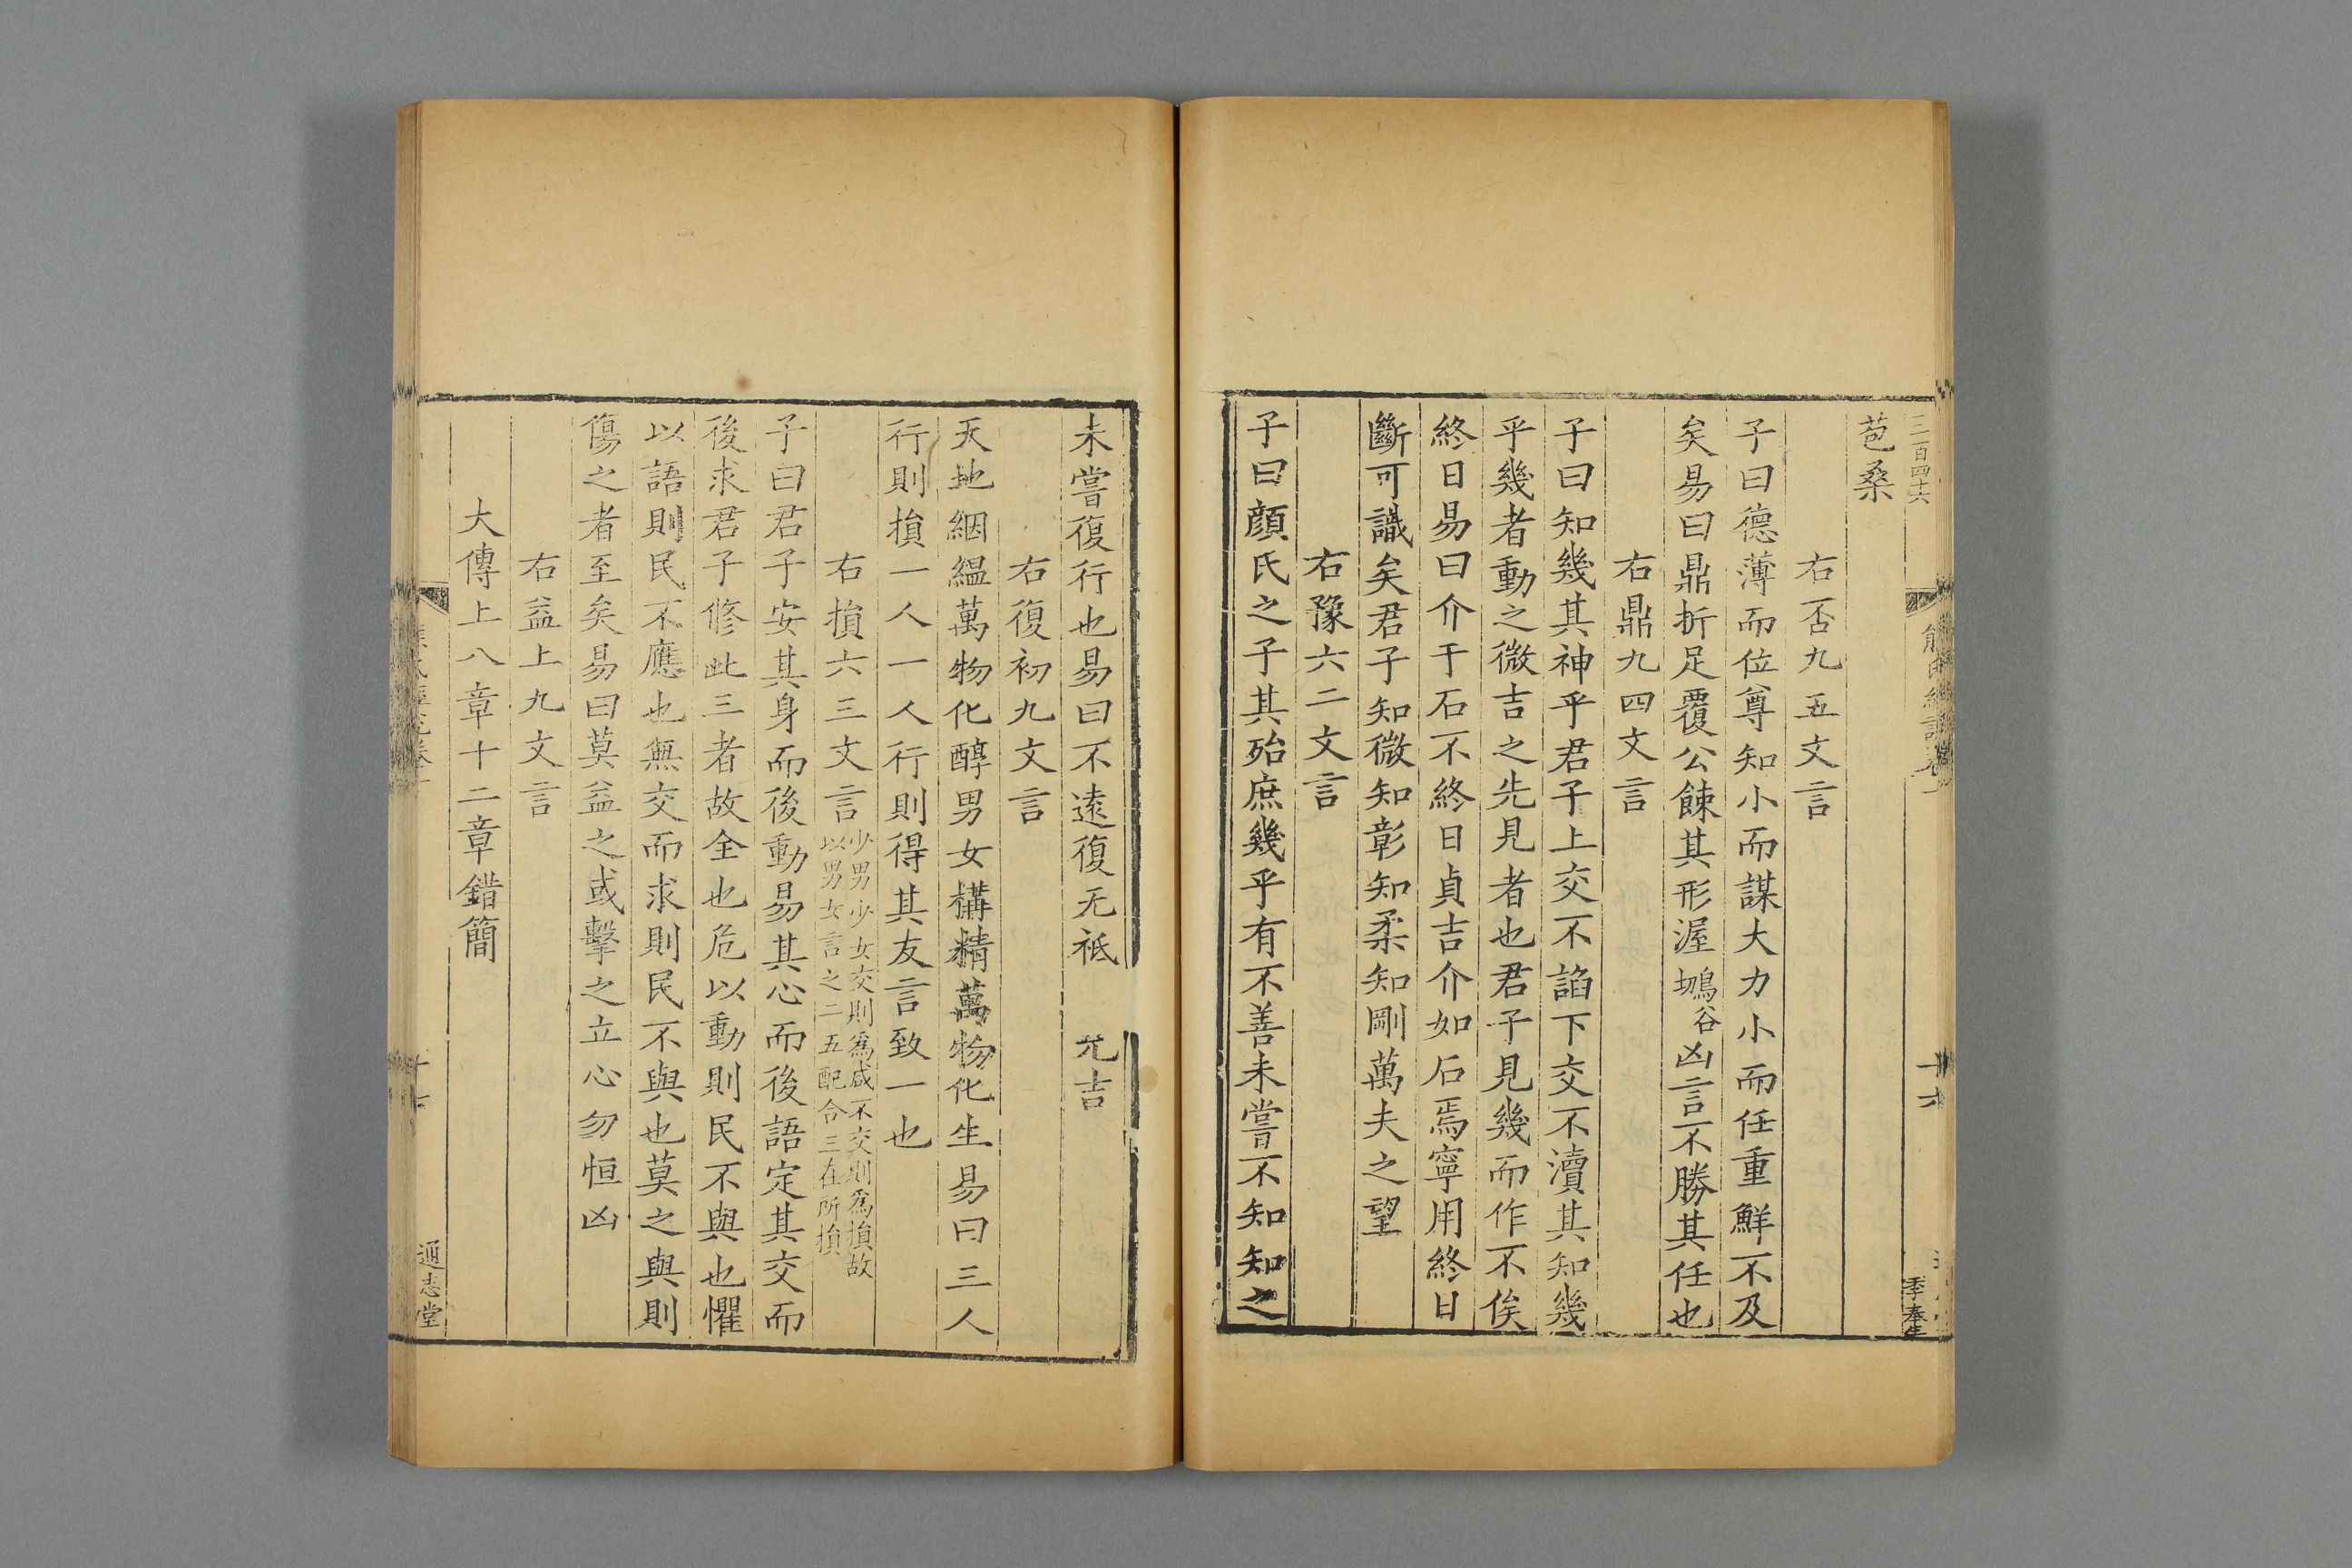 三百四十六
苞桑
右否九五文言
子曰德薄而位尊知小而謀大力小而任重鮮不及
矣易曰鼎折足覆公餗其形渥鳪谷凶言不勝其任也
右鼎九四文言
子曰知幾其神乎君子上交不諂下交不瀆其知幾
乎幾者動之微吉之先見者也君子見幾而作不俟
終日易曰介于石不終日貞吉介如石焉寧用終日
斷可識矣君子知微知彰知柔知剛萬夫之望
右豫六二文言
子曰顔氏之子其殆庶幾乎有不善未嘗不知知之
十六
季奉生
未嘗復行也易曰不遠復无祗 元吉
右復初九文言
天地絪緼萬物化醇男女構精萬物化生易曰三人
行則損一人一人行則得其友言致一也
右損六三文言少男少女交則爲咸不交則爲損故
以男女言之二五配合三在所損
子曰君子安其身而後動易其心而後語定其交而
後求君子修此三者故全也危以動則民不與也懼
以語則民不應也無交而求則民不與也莫之與則
傷之者至矣易曰莫益之或擊之立心勿恒凶
右益上九文言
大傳上八章十二章錯簡
通志堂